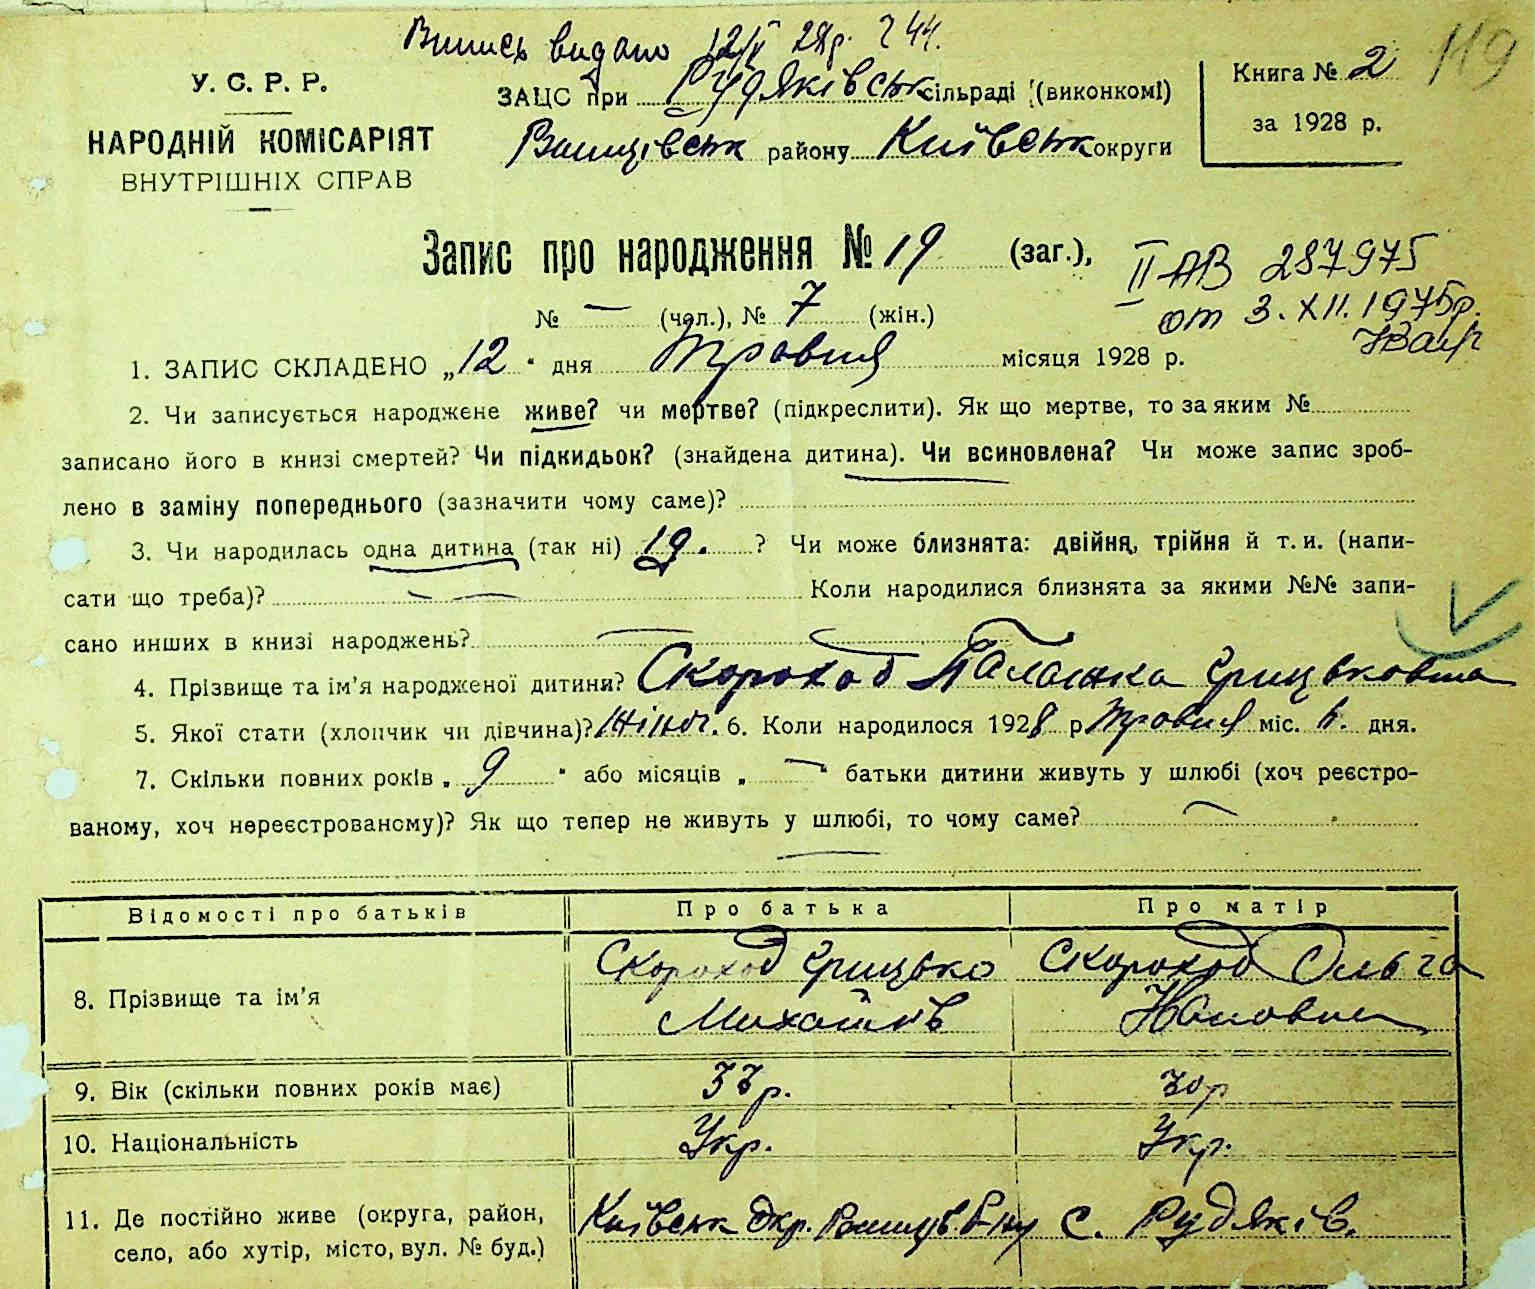 Випись видано 12/V 28р. 2 44.
119
У. С. Р. Р.
НАРОДНІЙ КОМІСАРІЯТ
ВНУТРІШНІХ СПРАВ
ЗАЦС при Рудяківськ сільраді (виконкомі)
району Київськ округи
Книга № 2
за 1928 р.
Запис про народження № 19 (заг.),
II АВ 287975
от 3. XII. 1975р.
№ — (чол.), № 7 (жін.)
1. ЗАПИС СКЛАДЕНО „12" дня Травня місяця 1928 р.
2. Чи записується народжене живе? чи мертве? (підкреслити). Як що мертве, то за яким №
записано його в книзі смертей? Чи підкидьок? (знайдена дитина). Чи всиновлена? Чи може запис зроб-
лено в заміну попереднього (зазначити чому саме)?
3. Чи народилась одна дитина (так ні) ? Чи може близнята: двійня, трійня й т. и. (напи-
сати що треба)? — — Коли народилися близнята за якими №№ запи-
сано инших в книзі народжень? — —
4. Прізвище та ім'я народженої дитини? Скороход Палажка Грицьковна
5. Якої стати (хлопчик чи дівчина)? Жіноч. 6. Коли народилося 1928 р Травня міс. дня.
7. Скільки повних років „ 9 " або місяців „ — " батьки дитини живуть у шлюбі (хоч реєстро-
ваному, хоч нереєстрованому)? Як що тепер не живуть у шлюбі, то чому саме? —
—
Відомості про батьків Про батька Про матір
8. Прізвище та ім'я Скороход Грицько Скороход Ольга
Михайлів
9. Вік (скільки повних років має) 33р. 30р
10. Національність Укр. Укр.
11. Де постійно живе (округа, район,
село, або хутір, місто, вул. № буд.)
Київськ Окр. р-ну с. Рудяків.